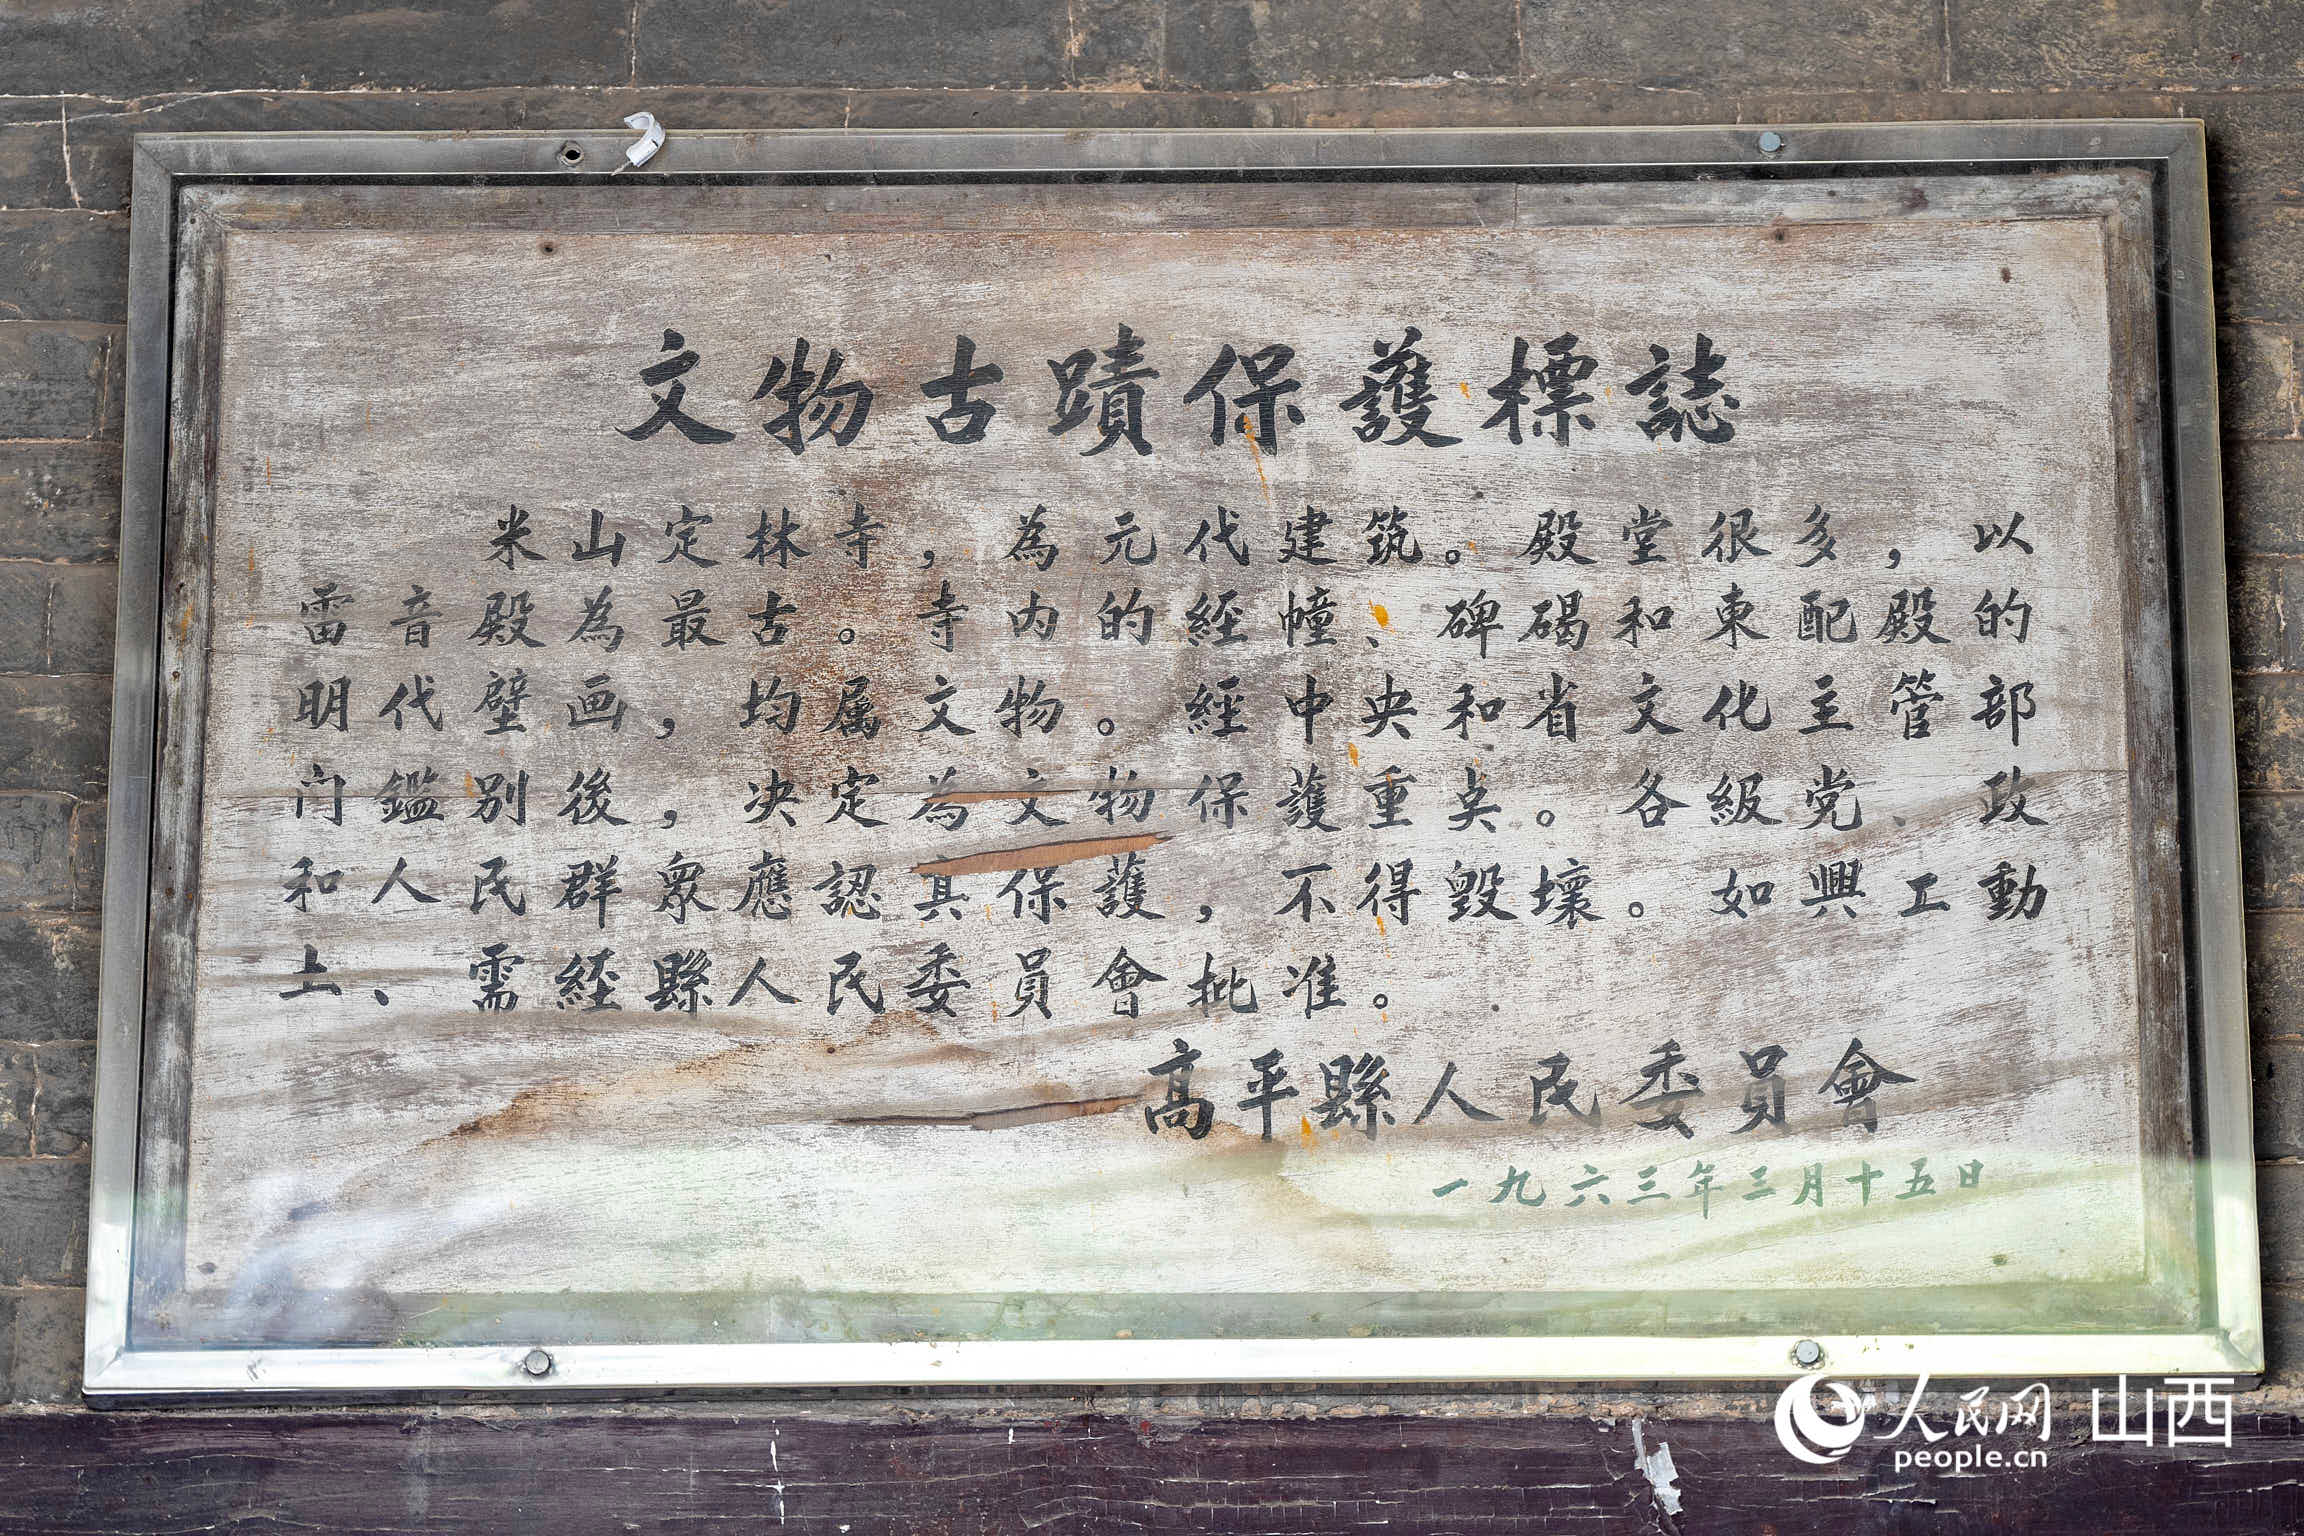 文物古蹟保護標誌
米山定林寺，為元代建筑。殿堂很多，以
雷音殿為最古。寺内的經幢、碑碣和東配殿的
明代壁画，均属文物。經中央和省文化主管部
门鑑別後，决定為文物保護重点。各級党、政
和人民群眾應認真保護，不得毀壞。如興工動
土、需經縣人民委員會批准。
高平縣人民委員會
一九六三年三月十五日
人民网 山西
people.cn